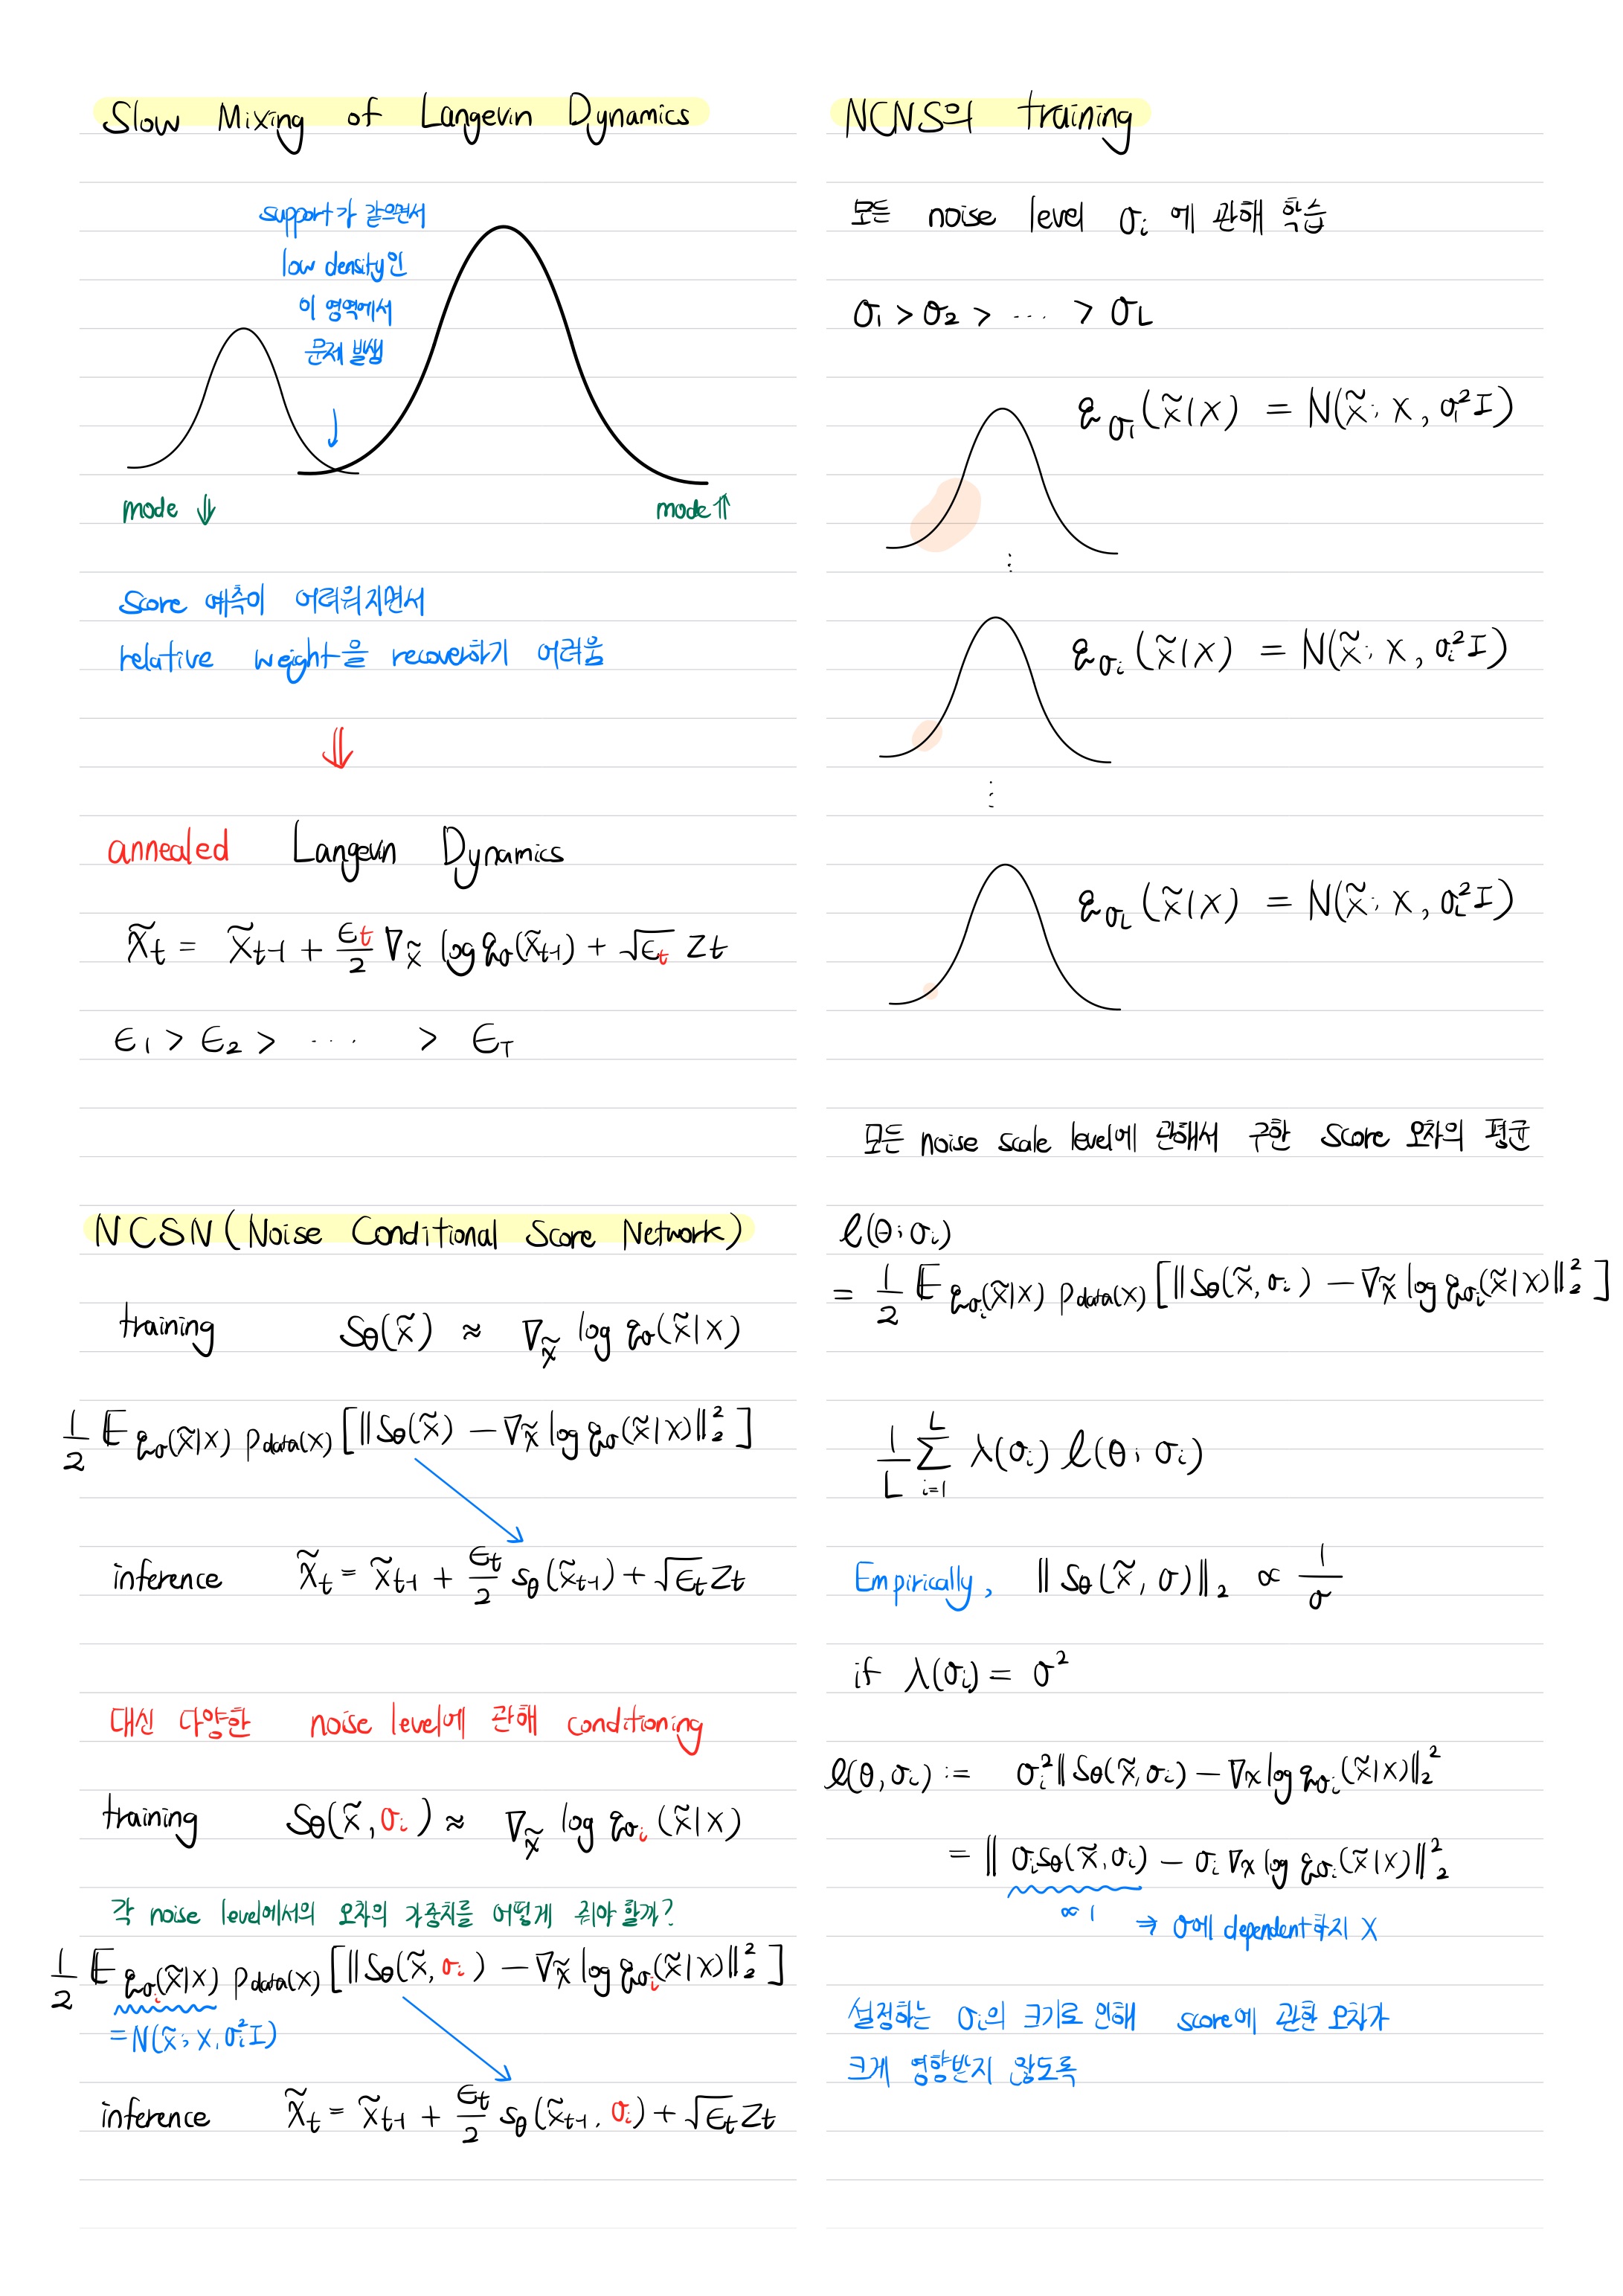 Slow Mixing of Langevin Dynamics
support가 같으면서
low density인
이 영역에서
문제 발생
mode ⇓
mode ⇑
score 예측이 어려워지면서
relative weight을 recover하기 어려움
⇓
annealed Langevin Dynamics
x̃_t = x̃_{t-1} + ε_t/2 ∇_x̃ log q_σ(x̃_{t-1}) + √ε_t z_t
ε_1 > ε_2 > ⋯ > ε_T
NCSN (Noise Conditional Score Network)
training S_θ(x̃) ≈ ∇_x̃ log q_σ(x̃|x)
1/2 𝔼_{q_σ(x̃|x) p_data(x)} [‖S_θ(x̃) − ∇_x̃ log q_σ(x̃|x)‖²₂]
inference x̃_t = x̃_{t-1} + ε_t/2 s_θ(x̃_{t-1}) + √ε_t z_t
대신 다양한 noise level에 관해 conditioning
training S_θ(x̃, σ_i) ≈ ∇_x̃ log q_{σ_i}(x̃|x)
각 noise level에서의 오차의 가중치를 어떻게 줘야 할까?
1/2 𝔼_{q_{σ_i}(x̃|x) p_data(x)} [‖S_θ(x̃, σ_i) − ∇_x̃ log q_{σ_i}(x̃|x)‖²₂]
= N(x̃; x, σ_i²I)
inference x̃_t = x̃_{t-1} + ε_t/2 s_θ(x̃_{t-1}, σ_i) + √ε_t z_t
NCNS의 training
모든 noise level σ_i 에 관해 학습
σ_1 > σ_2 > ⋯ > σ_L
q_{σ_1}(x̃|x) = N(x̃; x, σ_1²I)
⋮
q_{σ_i}(x̃|x) = N(x̃; x, σ_i²I)
⋮
q_{σ_L}(x̃|x) = N(x̃; x, σ_L²I)
모든 noise scale level에 관해서 구한 score 오차의 평균
ℓ(θ; σ_i)
= 1/2 𝔼_{q_{σ_i}(x̃|x) p_data(x)} [‖S_θ(x̃, σ_i) − ∇_x̃ log q_{σ_i}(x̃|x)‖²₂]
1/L ∑_{i=1}^{L} λ(σ_i) ℓ(θ; σ_i)
Empirically, ‖S_θ(x̃, σ)‖₂ ∝ 1/σ
if λ(σ_i) = σ²
ℓ(θ, σ_i) := σ_i²‖S_θ(x̃, σ_i) − ∇_x log q_{σ_i}(x̃|x)‖²₂
= ‖σ_i s_θ(x̃, σ_i) − σ_i ∇_x log q_{σ_i}(x̃|x)‖²₂
∝ 1 ⇒ σ에 dependent하지 X
설정하는 σ_i의 크기로 인해 score에 관한 오차가
크게 영향받지 않도록